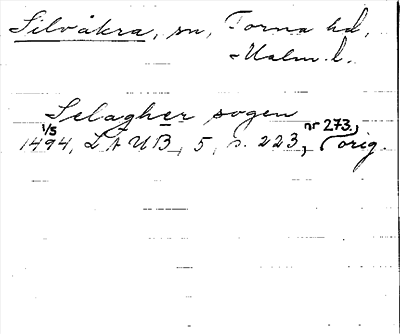 Silvåkra, sn, Torna hd,
Malm. l.
Selagher sogen
1/5 nr 273,
1494, LÄUB, 5, s. 223, orig.